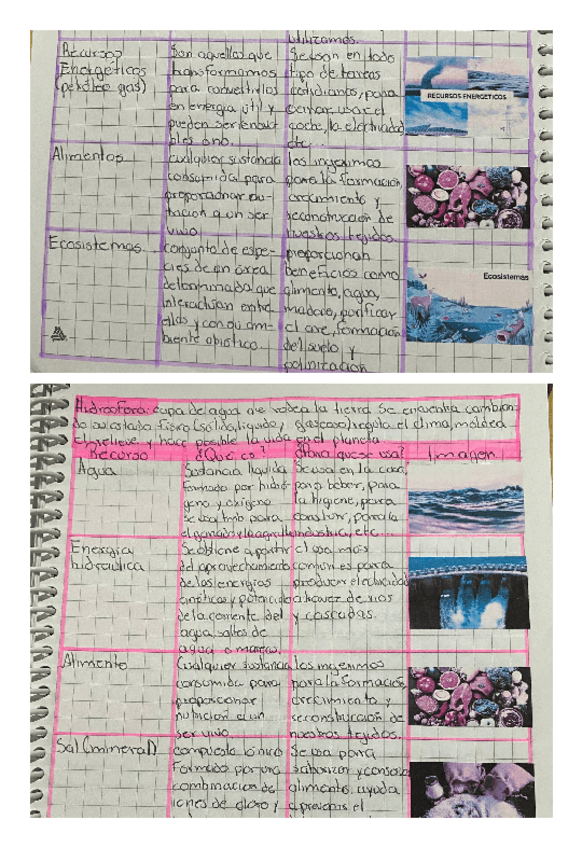 utilizamos.
Recursos
Energéticos
(petróleo gas)
Son aquellos que
transformamos
para convertirlos
en energía útil y
pueden ser renova
bles o no.
Se usan en todo
tipo de tareas
cotidianas, para
cocinar, usar el
coche, la electricidad
etc...
RECURSOS ENERGETICOS
Alimentos
cualquier sustancia
consumida para
proporcionar nu-
trición a un ser
vivo.
los ingerimos
para la formación,
crecimiento y
reconstrucción de
nuestros tejidos.
Ecosistemas.
conjunto de espe-
cies de un área
determinada que
interactúan entre
ellas y con su am-
biente abiótico.
proporcionan
beneficios como
alimento, agua,
madera, purificar
el aire, formación
del suelo y
polinización
Ecosistemas
Hidrosfera: capa de agua que rodea la tierra. Se encuentra cambian-
do su estado físico (solido, liquido y gaseoso) regula el clima, moldea
el relieve y hace posible la vida en el planeta.
Recurso
¿Qué es?
¿Para que se usa?
Imagen
Agua
Sustancia liquida
formada por hidró
geno y oxígeno
se usa en la casa,
para beber, para
la higiene, para
construir, para la
industria, etc...
Energía
hidráulica
Se obtiene a partir
del aprovechamiento
de las energías
cinéticas y potencial
de la corriente del
agua, saltos de
agua o mareas.
el uso mas
común es para
producir electricidad
a traves de rios
y cascadas.
Alimento
Cualquier sustancia
consumida para
proporcionar
nutrición a un
ser vivo
los ingerimos
para la formación,
crecimiento y
reconstrucción de
nuestros tejidos.
Sal (mineral)
compuesto iónico
formado por una
combinación de
iones de cloro y
Se usa para
saborizar y conservar
alimento, ayuda
a prevenir el